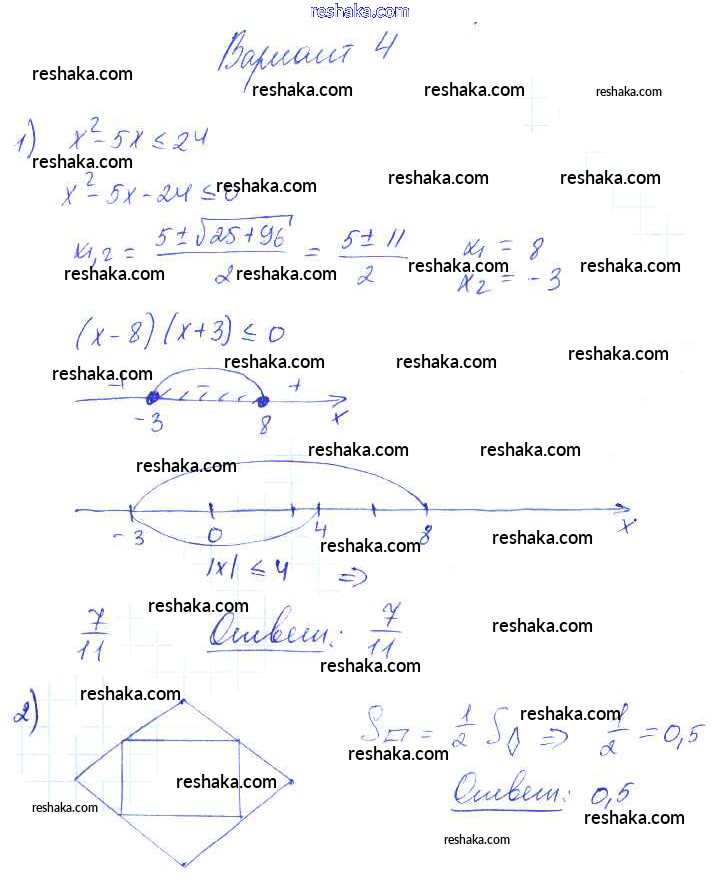 reshaka.com
Вариант 4
reshaka.com
reshaka.com reshaka.com reshaka.com
1) x² - 5x ≤ 24
reshaka.com reshaka.com reshaka.com reshaka.com
x² - 5x - 24 ≤ 0
x₁,₂ = (5 ± √(25 + 96))/2 = (5 ± 11)/2 x₁ = 8
x₂ = -3
reshaka.com reshaka.com reshaka.com reshaka.com
(x - 8)(x + 3) ≤ 0
reshaka.com reshaka.com reshaka.com reshaka.com
+ - +
-3 8 x
reshaka.com reshaka.com reshaka.com
-3 0 4 8 x
reshaka.com reshaka.com
|x| ≤ 4 ⇒
reshaka.com
7/11 Ответ: 7/11
reshaka.com reshaka.com
2) S▱ = 1/2 S◊ ⇒ 1/2 = 0,5
reshaka.com reshaka.com
reshaka.com reshaka.com
Ответ: 0,5
reshaka.com reshaka.com
reshaka.com